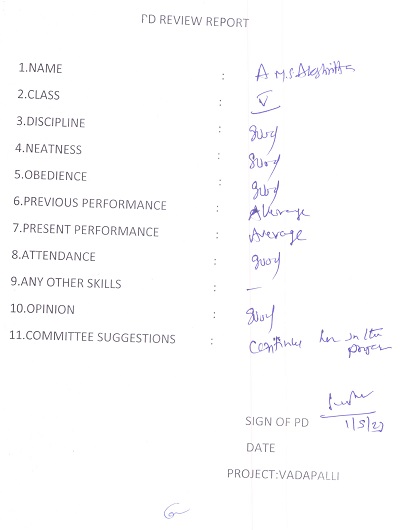 PD REVIEW REPORT
1.NAME : A M.S Akshitha
2.CLASS : V
3.DISCIPLINE : good
4.NEATNESS : good
5.OBEDIENCE : good
6.PREVIOUS PERFORMANCE : Average
7.PRESENT PERFORMANCE : Average
8.ATTENDANCE : good
9.ANY OTHER SKILLS : —
10.OPINION : good
11.COMMITTEE SUGGESTIONS : Continue her in the
program
SIGN OF PD
DATE
PROJECT:VADAPALLI